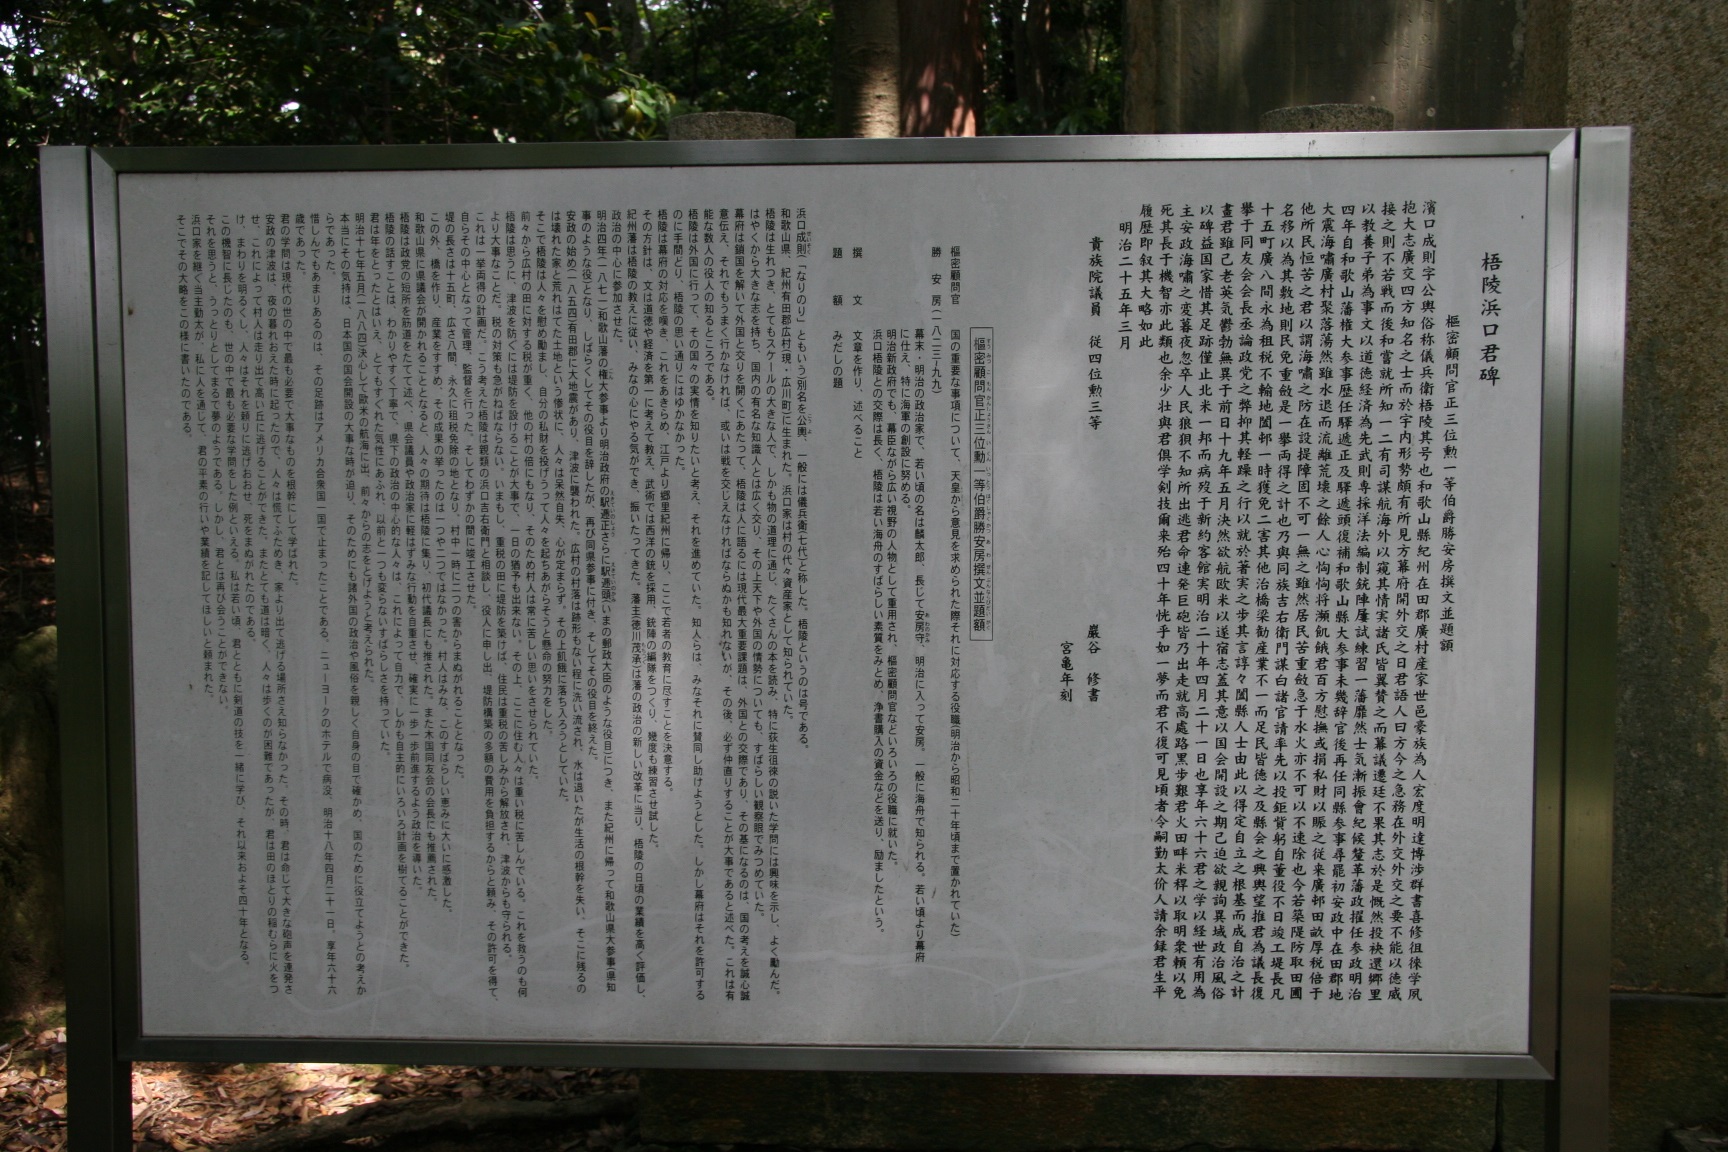 梧陵浜口君碑
樞密顧問官正三位勲一等伯爵勝安房撰文並題額
濱口成則字公輿俗称儀兵衛梧陵其号也和歌山縣紀州在田郡廣村産家世邑豪族為人宏度明達博渉群書喜修徂徠学夙
抱大志廣交四方知名之士而於宇内形勢頗有所見方幕府開外交之日君語人曰方今之急務在外交外交之要不能以徳威
接之則不若戦而後和嘗就所知一二有司謀航海外以窺其情実諸氏皆翼賛之而幕議遷廷不果其志於是慨然投袂還郷里
以教養子弟為事文以道徳経済為先武則専採洋法編制銃陣屢試練習一藩靡然士気漸振會紀候釐革藩政擢任参政明治
四年自和歌山藩権大参事歴任驛逓正及驛逓頭復補和歌山縣大参事未幾辞官後再任同縣参事尋罷初安政中在田郡地
大震海嘯廣村聚落蕩然雖水退而流離荒壊之餘人心恟恟将瀕飢餓君百方慰撫或捐私財以賑之従来廣邨田畝厚税倍于
他所民恒苦之君以謂海嘯之防在設提障固不可一無之雖然居民苦重斂急于水火亦不可以不速除也今若築隄防取田圃
名移以為其敷地則民免重斂是一擧両得之計也乃與同族吉右衛門謀白諸官請率先以投鉅貲躬自董役不日竣工堤長凡
十五町廣八間永為租税不輸地闔邨一時獲免二害其他治橋梁勧産業不一而足民皆徳之及縣会之興輿望推君為議長復
擧于同友会会長丞論政党之弊抑其軽躁之行以就於著実之歩其言諄々闔縣人士由此以得定自立之根基而成自治之計
畫君雖己老英気鬱勃無異于前日十九年五月決然欲航欧米以遂宿志蓋其意以国会開設之期己迫欲親詢異域政治風俗
以碑益国家惜其足跡僅止北米一邦而病歿于新約客館実明治二十年四月二十一日也享年六十六君之学以経世有用為
主安政海嘯之変暮夜忽卒人民狼狽不知所出逃君命連発巨砲皆乃出走就高處路黒歩艱君火田畔米稈以取明衆頼以免
死其長于機智亦此類也余少壮與君倶学剣技爾来殆四十年恍乎如一夢而君不復可見頃者今嗣勤太价人請余録君生平
履歴即叙其大略如此
明治二十五年三月
貴族院議員　従四位勲三等　巖谷　修書
宮亀年刻
樞密顧問官正三位勲一等伯爵勝安房撰文並題額
樞密顧問官　国の重要な事項について、天皇から意見を求められた際それに対応する役職(明治から昭和二十年頃まで置かれていた)
勝　安房(一八二三~九九)　幕末・明治の政治家で、若い頃の名は麟太郎、長じて安房守、明治に入って安房。一般に海舟で知られる。若い頃より幕府
に仕え、特に海軍の創設に努める。
明治新政府でも、幕臣ながら広い視野の人物として重用され、樞密顧問官などいろいろの役職に就いた。
浜口梧陵との交際は長く、梧陵は若い海舟のすばらしい素質をみとめ、浄書購入の資金などを送り、励ましたという。
撰　文　文章を作り、述べること
題　額　みだしの題
浜口成則(「なりのり」ともいう)別名を公輿、一般には儀兵衛(七代)と称した。梧陵というのは号である。
和歌山県、紀州有田郡広村(現・広川町)に生まれた。浜口家は村の代々資産家として知られていた。
梧陵は生れつき、とてもスケールの大きな人で、しかも物の道理に通じ、たくさんの本を読み、特に荻生徂徠の説いた学問には興味を示し、よく勤んだ。
はやくから大きな志を持ち、国内の有名な知識人とは広く交り、その上天下や外国の情勢についても、すばらしい観察眼でみつめていた。
幕府は鎖国を解いて外国と交りを開くにあたって、梧陵は人に語るには現代最大重要課題は、外国との交際であり、その基になるのは、国の考えを誠心誠
意伝え、それでもうまく行かなければ、或いは戦を交じえなければならぬかも知れないが、その後、必ず仲直りすることが大事であると述べた。これは有
能な数人の役人の知るところである。
梧陵は外国に行って、その国々の実情を知りたいと考え、それを進めていた。知人らは、みなそれに賛同し助けようとした。しかし幕府はそれを許可する
のに手間どり、梧陵の思い通りにはゆかなかった。
梧陵は幕府の対応を嘆き、これをあきらめ、江戸より郷里紀州に帰り、ここで若者の教育に尽すことを決意する。
その方針は、文は道徳や経済を第一に考えて教え、武術では西洋の銃を採用、銃陣の編隊をつくり、幾度も練習させ試した。
紀州藩は梧陵の教えに従い、みなの心にやる気ができ、振いたってきた。藩主(徳川茂承)は藩の政治の新しい改革に当り、梧陵の日頃の業績を高く評価し、
政治の中心に参加させた。
明治四年(一八七一)和歌山藩の権大参事より明治政府の駅逓正さらに駅逓頭(いまの郵政大臣のような役目)につき、また紀州に帰って和歌山県大参事(県知
事のような役)となり、しばらくしてその役目を辞したが、再び同県参事に付き、そしてその役目を終えた。
安政の始め(一八五四)有田郡に大地震があり、津波に襲われた。広村の村落は跡形もない程に洗い流され、水は退いたが生活の根幹を失い、そこに残るの
は壊れた家と荒れはてた土地という惨状に、人々は呆然自失、心が定まらず。その上飢餓に落ち入ろうとしていた。
そこで梧陵は人々を慰め励まし、自分の私財を投げうって人々を起ちあがらそうと懸命の努力をした。
前々から広村の田に対する税が重く、他の村の倍にもなり、そのため村人は常に苦しい思いをさせられていた。
梧陵は思うに、津波を防ぐには堤防を設けることが大事で、一日の猶予も出来ない。その上、ここに住む人々は重い税に苦しんでいる。これを救うのも何
より大事なことだ。税の対策も急がねばならない。いまもし、重税の田に堤防を築けば、住民は重税の苦しみから解放され、津波からも守られる。
これは一挙両得の計画だ。こう考えた梧陵は親類の浜口吉右衛門と相談し、役人に申し出、堤防構築の多額の費用を負担するからと頼み、その許可を得て、
自らその中心となって管理、監督を行った。そしてわずかの間に竣工させた。
堤の長さは十五町、広さ八間、永久に租税免除の地となり、村中一時に二つの害からまぬがれることとなった。
この外、橋を作り、産業をすすめ、その成果の挙ったのは一つや二つではなかった。村人はみな、このすばらしい恵みに大いに感激した。
和歌山県に県議会が開かれることとなると、人々の期待は梧陵に集り、初代議長にも推された。また木国同友会の会長にも推薦された。
梧陵は政党の短所を筋道をたてて述べ、県会議員や政治家に軽はずみな行動を自重させ、確実に一歩一歩前進するよう政治を導いた。
梧陵の話すことは、わかりやすく丁寧で、県下の政治の中心的な人々は、これによって自力で、しかも自主的にいろいろ計画を樹てることができた。
君は年をとったとはいえ、とてもすぐれた気性にあふれ、以前と一つも変らないすばらしさを持っていた。
明治十七年五月(一八八四)決心して欧米の航海に出、前々からの志をとげようと考えられた。
本当にその気持は、日本国の国会開設の大事な時が迫り、そのためにも諸外国の政治や風俗を親しく自身の目で確かめ、国のために役立てようとの考えか
らであった。
惜しんでもあまりあるのは、その足跡はアメリカ合衆国一国で止まったことである。ニューヨークのホテルで病没、明治十八年四月二十一日。享年六十六
歳であった。
君の学問は現代の世の中で最も必要で大事なものを根幹にして学ばれた。
安政の津波は、夜の暮れおえた時に起ったので、人々は慌てふためき、家より出て逃げる場所さえ知らなかった。その時、君は命じて大きな砲声を連発さ
せ、これによって村人は走り出て高い丘に逃げることができた。またとても道は暗く、人々は歩くのが困難であったが、君は田のほとりの稲むらに火をつ
け、まわりを明るくし、人々はそれを頼りに逃げおおせ、死をまぬがれたのである。
この機智に長したのも、世の中で最も必要な学問をした例といえる。私は若い頃、君とともに剣道の技を一緒に学び、それ以来およそ四十年となる。
それを思うと、うっとりとしてまるで夢のようである。しかし、君とは再び会うことができない。
浜口家を継ぐ当主勤太が、私に人を通して、君の平素の行いや業績を記してほしいと頼まれた。
そこでその大略をこの様に書いたのである。